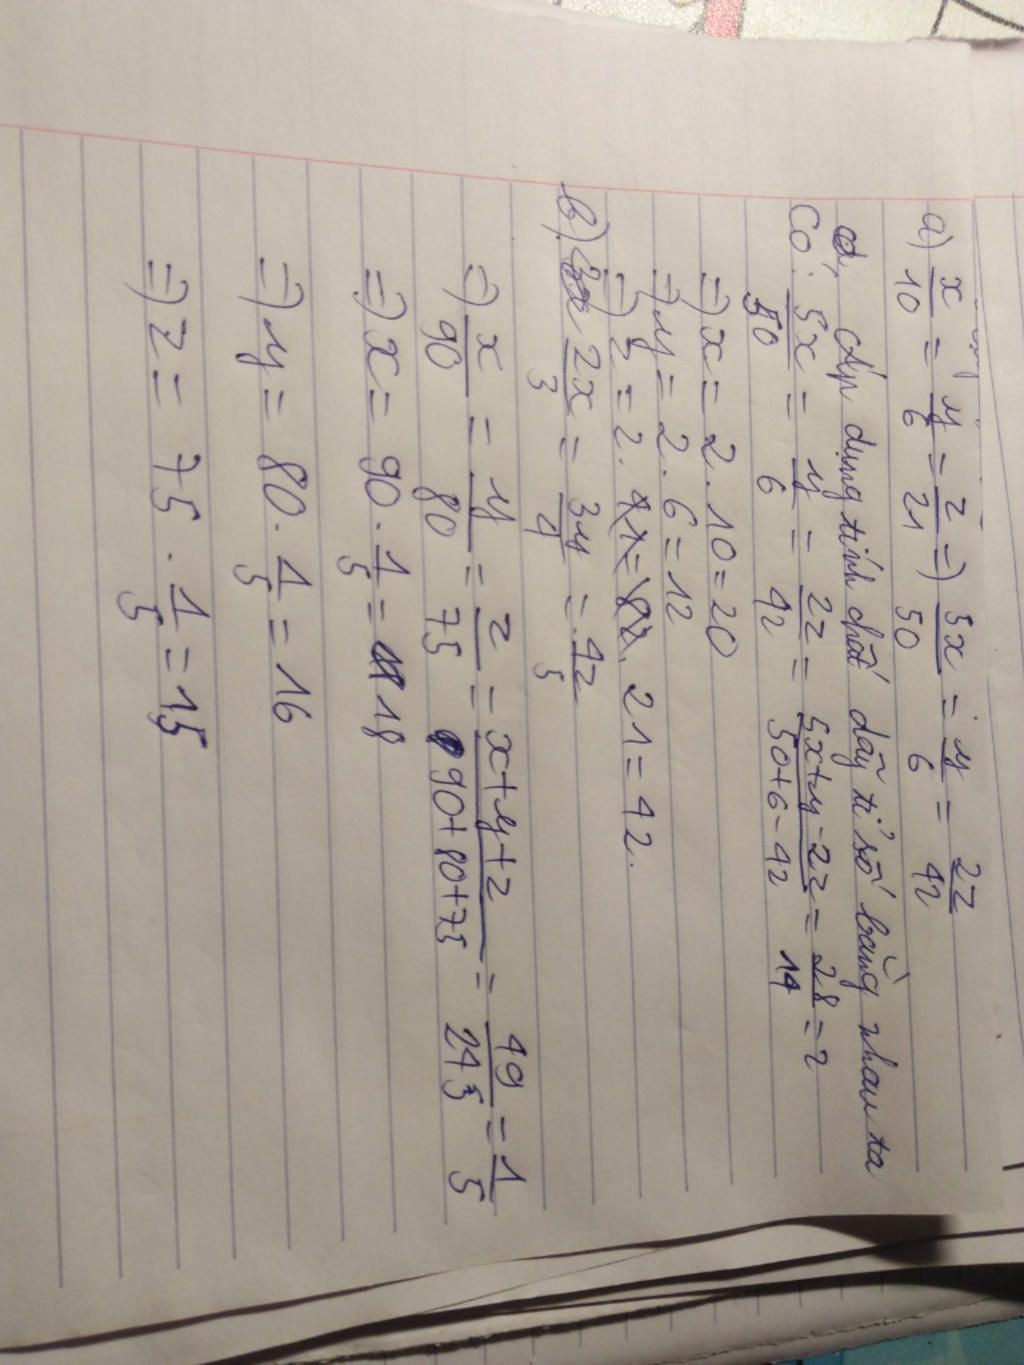 a) x/10 = y/6 = z/21 => 5x/50 = y/6 = 2z/42
Áp dụng tính chất dãy tỉ số bằng nhau ta
có: 5x/50 = y/6 = 2z/42 = 5x+y-2z/50+6-42 = 28/14 = 2
=> x = 2.10 = 20
=> y = 2.6 = 12
=> z = 2. 21 = 42.
b) 2x/3 = 3y/4 = 4z/5
=> x/90 = y/80 = z/75 = x+y+z/90+80+75 = 49/245 = 1/5
=> x = 90 . 1/5 = 18
=> y = 80 . 1/5 = 16
=> z = 75 . 1/5 = 15